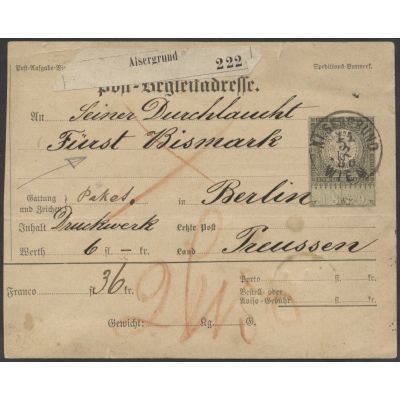 Post-Aufgabe-
Aisergrund 222
Speditions-Vermerk.
Post-Begleitadresse.
An Seiner Durchlaucht
Fürst Bismark
ALSERGRUND
WIEN
Gattung und Zeichen Paket. in Berlin
Inhalt Druckwerk Letzte Post
Werth 6 fl. — kr. Land Preussen
Franco fl. 36 kr. Porto fl. kr.
Bestell- oder Aviso-Gebühr fl. kr.
Gewicht: Kg. G.